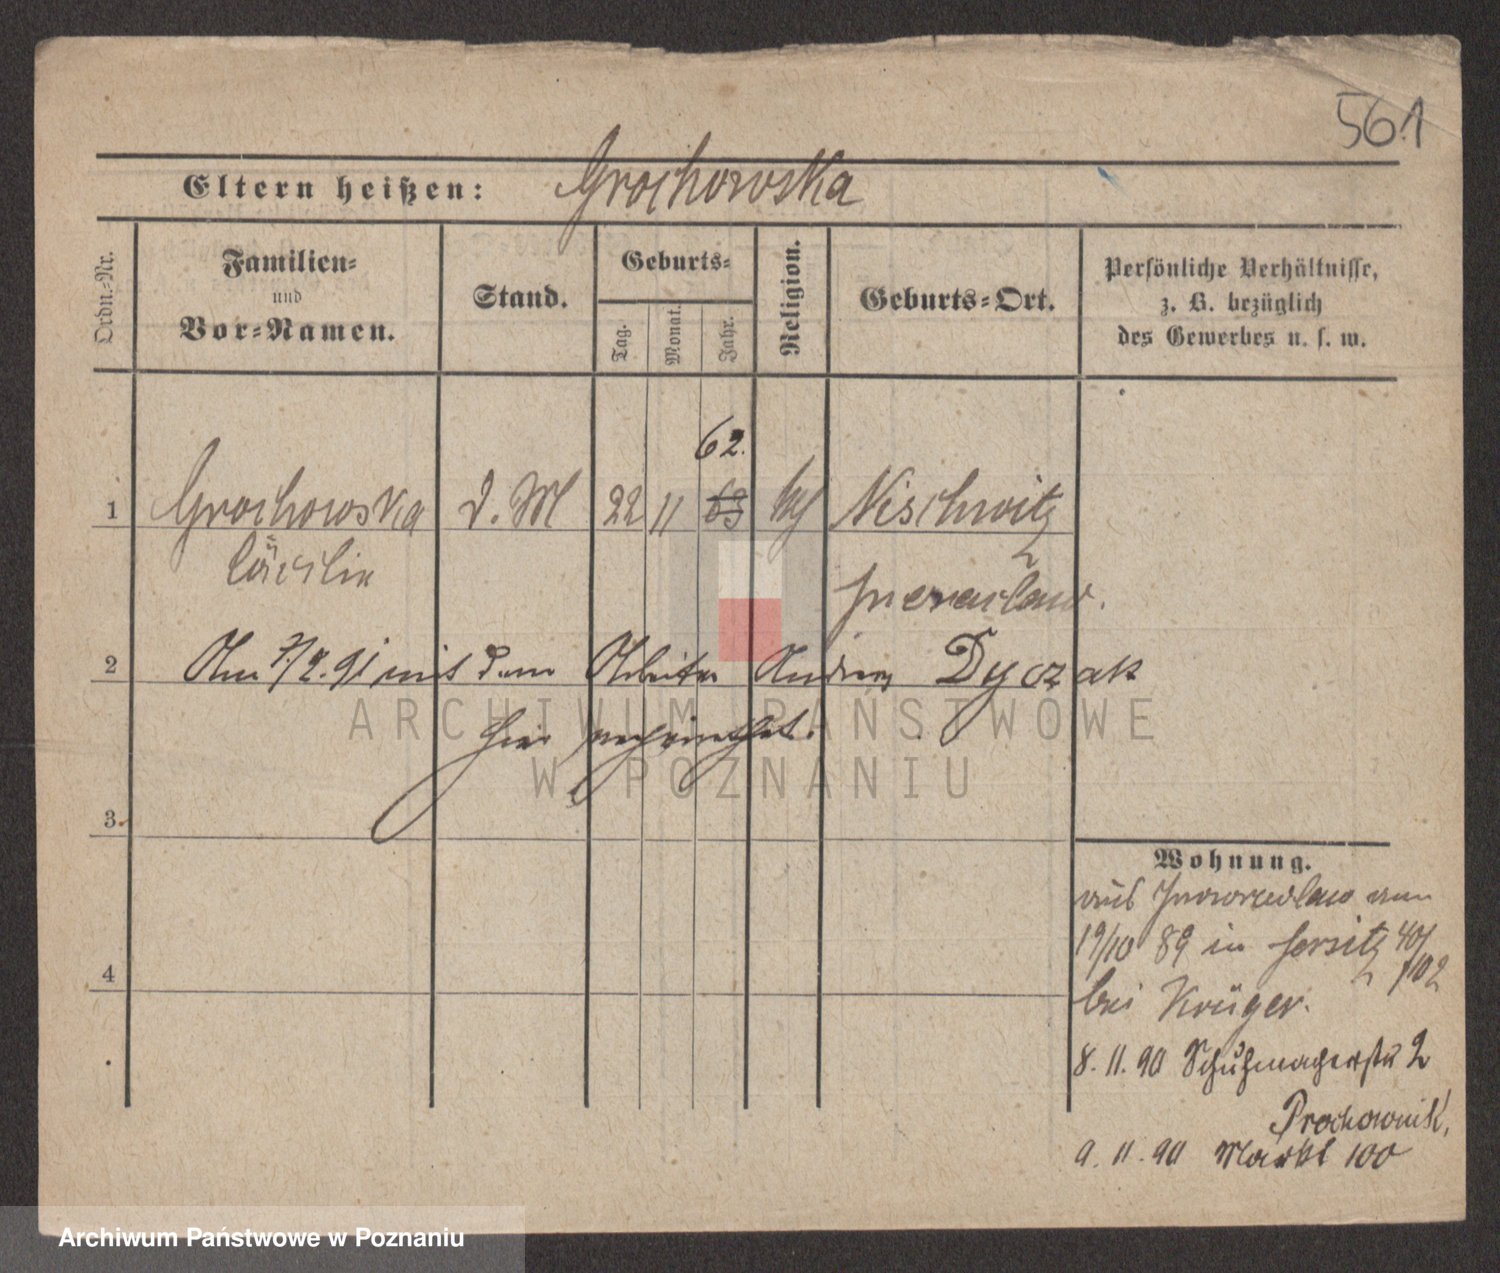 561
Eltern heißen: Grochowska
Ordn.-Nr.
Familien-
und
Vor-Namen.
Stand.
Geburts-
Tag.
Monat.
Jahr.
Religion.
Geburts-Ort.
Persönliche Verhältnisse,
z. B. bezüglich
des Gewerbes u. s. w.
62.
1 Grochowska d. M 22 11 63 kath Nischwitz
Cäcilie
Inowraclaw.
2 Am 7/2. 91 mit dem Arbeiter Andreas Dyczak
hier verheirathet.
ARCHIWUM PAŃSTWOWE
W POZNANIU
3.
4
Wohnung.
aus Inowraclaw am
19/10 89 in Jersitz 40/
1/02
bei Krüger.
8. 11. 90 Schuhmacherstr 2
Prochownik,
9. 11. 90 Markt 100
Archiwum Państwowe w Poznaniu